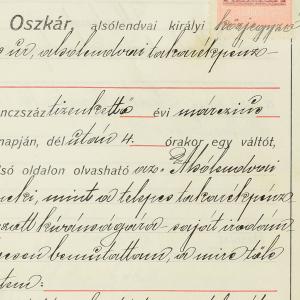 Oszkár, alsólendvai királyi közjegyző
úr, alsólendvai takarékpénz-
nczszáz tizenkettő évi márczius
napján, dél után 4. órakor egy váltót,
lsó oldalon olvasható az "Alsólendvai
neki, mint a telepes takarékpénz-
kívánságára saját irodám
bemutattam, a mire tőle
tem: